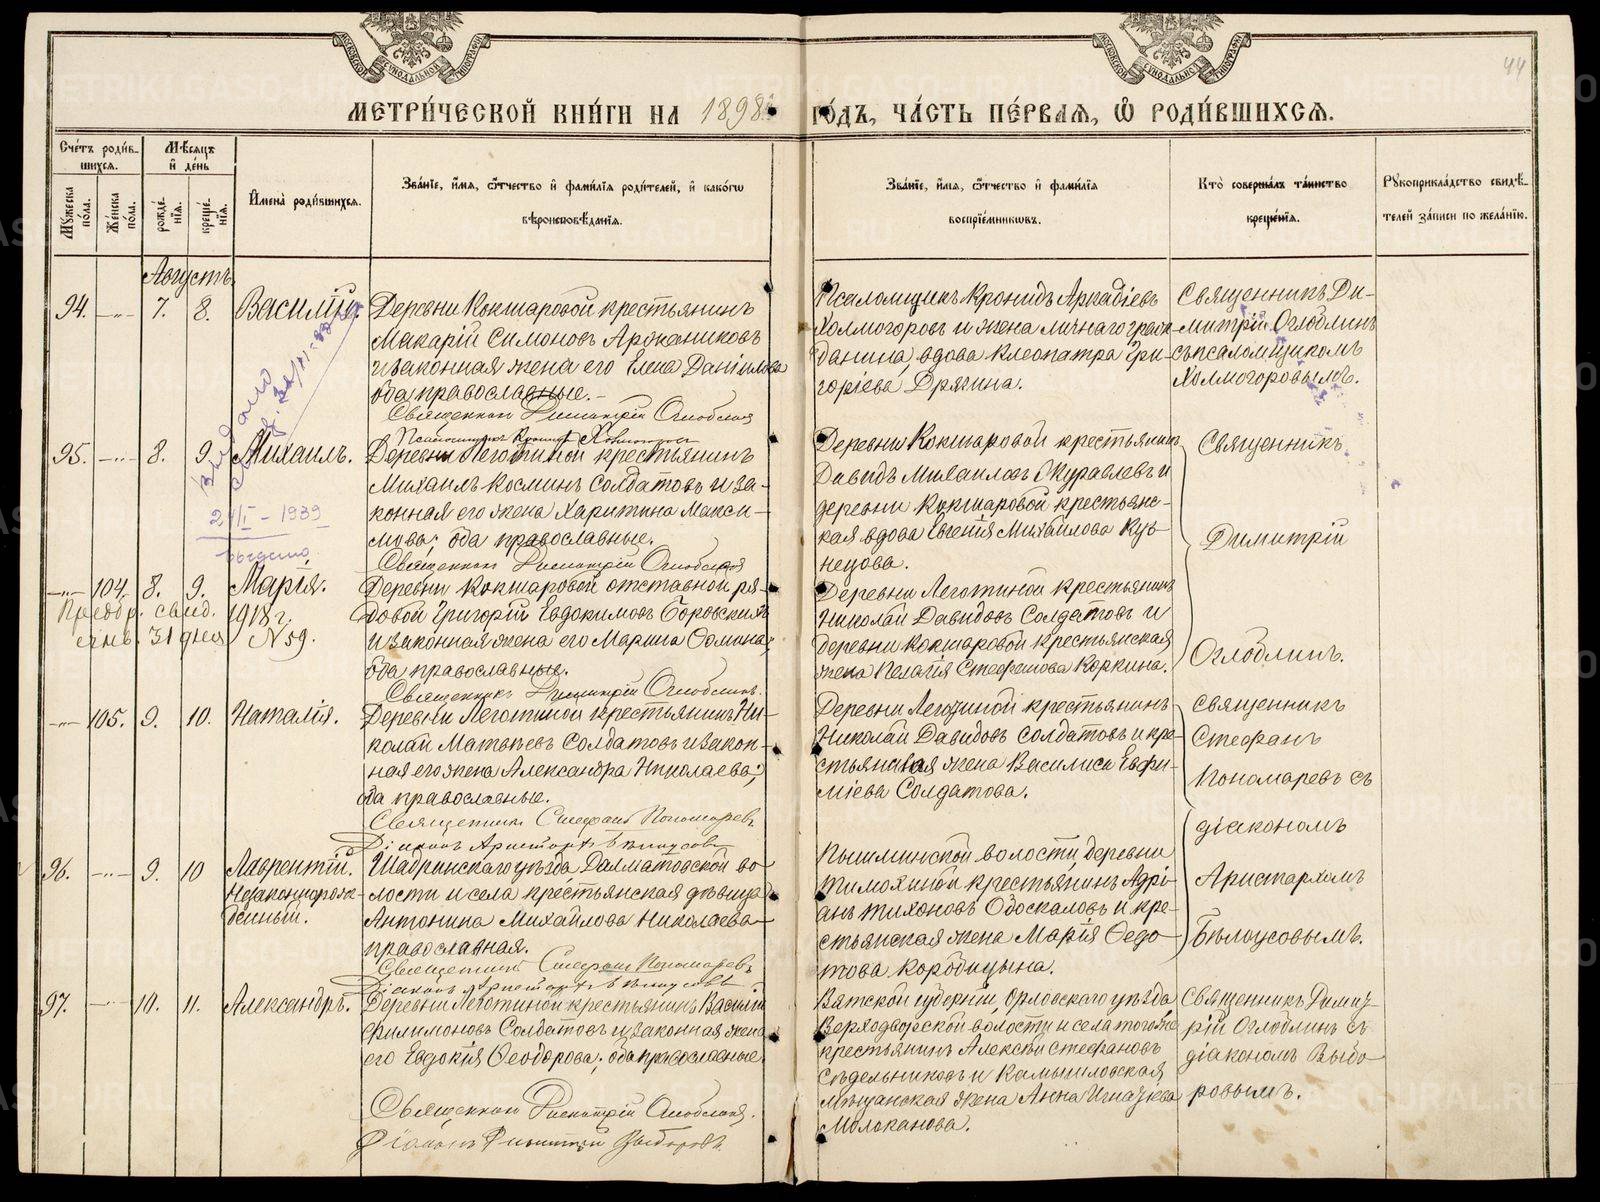 44
МЕТРИ́ЧЕСКОЙ КНИ́ГИ НА 1898й ГО́ДЪ, ЧА́СТЬ ПЕ́РВАЯ, Ѽ РОДИ́ВШИХСЯ.
Сче́тъ роди́в-
шихся.
Му́жеска по́ла.
Же́нска по́ла.
Мѣ́сяцъ
и де́нь
рожде́-
нїя.
креще́-
нїя.
Имена̀ роди́вшихся.
Зва́нїе, и́мя, ѻ́тчество и фами́лїя роди́телей, и како́гѡ
вѣроисповѣ́данїя.
Зва́нїе, и́мя, ѻ́тчество и фами́лїя
воспрїе́мниковъ.
Кто̀ соверша́лъ та́инство
креще́нїя.
Рꙋкоприкла́дство свидѣ́-
телей за́писи по жела́нїю.
Августъ
94. —"— 7. 8. Василій.
Деревни Кокшаровой крестьянинъ
Макарій Симоновъ Аржаниковъ
и законная жена его Елена Даніилова
оба православные.—
Священникъ Димитрій Оглоблинъ
Псаломщикъ Кронидъ Холмогоровъ
Псаломщикъ Кронидъ Аркадіевъ
Холмогоровъ и жена личнаго граж-
данина, вдова Клеопатра Гри-
горіева Дрягина.
Священникъ Ди-
митрій Оглоблинъ
съ псаломщикомъ
Холмогоровымъ.
95. —"— 8. 9. Михаилъ.
24/I – 1939
выдано
Деревни Леготиной крестьянинъ
Михаилъ Косминъ Солдатовъ и за-
конная его жена Харитина Макси-
мова; оба православные.
Священникъ Димитрій Оглоблинъ
Деревни Кокшаровой крестьянинъ
Давидъ Михаиловъ Журавлевъ и
деревни Кокшаровой крестьянс-
кая вдова Евгенія Михайлова Куз-
нецова.
Священникъ
Димитрій
Оглоблинъ.
—"— 104. 8. 9. Марія.
Пріобр. свид. 1918 г.
янв. 31 дня N 59.
Деревни Кокшаровой отставной ря-
довой Григорій Евдокимовъ Боровскихъ
и законная жена его Марина Фомина;
оба православные.
Священникъ Димитрій Оглоблинъ.
Деревни Леготиной крестьянинъ
Николай Давидовъ Солдатовъ и
деревни Кокшаровой крестьянская
жена Пелагія Стефанова Коркина.
—"— 105. 9. 10. Наталія.
Деревни Леготиной крестьянинъ Ни-
колай Матвѣевъ Солдатовъ и закон-
ная его жена Александра Николаева;
оба православные.
Священникъ Стефанъ Пономаревъ
Діаконъ Аристархъ Бѣлоусовъ
Деревни Леготиной крестьянинъ
Николай Давидовъ Солдатовъ и кре-
стьянская жена Василиса Евфи-
міева Солдатова.
Священникъ
Стефанъ
Пономаревъ съ
діакономъ
Аристархомъ
Бѣлоусовымъ.
96. —"— 9. 10 Лаврентій.
Незаконнорож-
денный.
Шадринскаго уѣзда, Далматовской во-
лости и села крестьянская дѣвица
Антонина Михайлова Николаева
православная.
Священникъ Стефанъ Пономаревъ
Діаконъ Аристархъ Бѣлоусовъ
Пышминской волости, деревни
Тимохиной крестьянинъ Адрі-
анъ Тихоновъ Обоскаловъ и кре-
стьянская жена Марія Ѳедо-
това Коробицына.
97. —"— 10. 11. Александръ.
Деревни Леготиной крестьянинъ Василій
Филимоновъ Солдатовъ и законная жена
его Евдокія Ѳеодорова; оба православные
Священникъ Димитрій Оглоблинъ.
Діаконъ Димитрій Выборовъ.
Вятской губерніи, Орловскаго уѣзда
Верходворской волости и села того же
крестьянинъ Алексѣй Стефановъ
Сѣдельниковъ и Камышловская
мѣщанская жена Анна Игнатіева
Молоканова.
Священникъ Димит-
рій Оглоблинъ съ
діакономъ Выбо-
ровымъ.